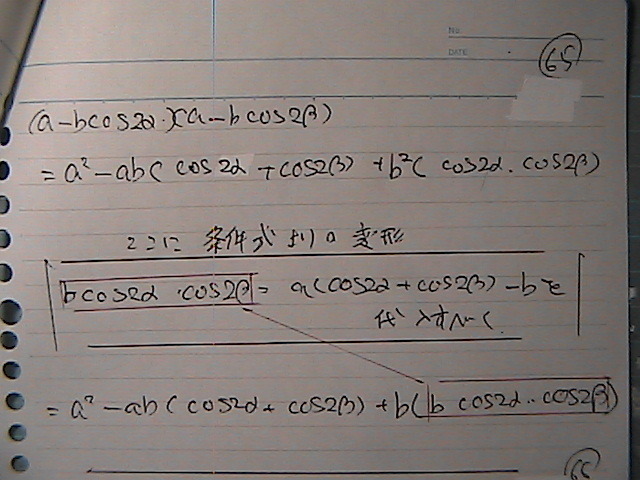 No.
DATE
65
(a-bcos2α)(a-bcos2β)
=a²-ab(cos2α+cos2β)+b²(cos2α.cos2β)
ここに 条件式よりの変形
bcos2α·cos2β = a(cos2α+cos2β)-bを
代入すべく.
=a²-ab(cos2α+cos2β)+b(b cos2α..cos2β)